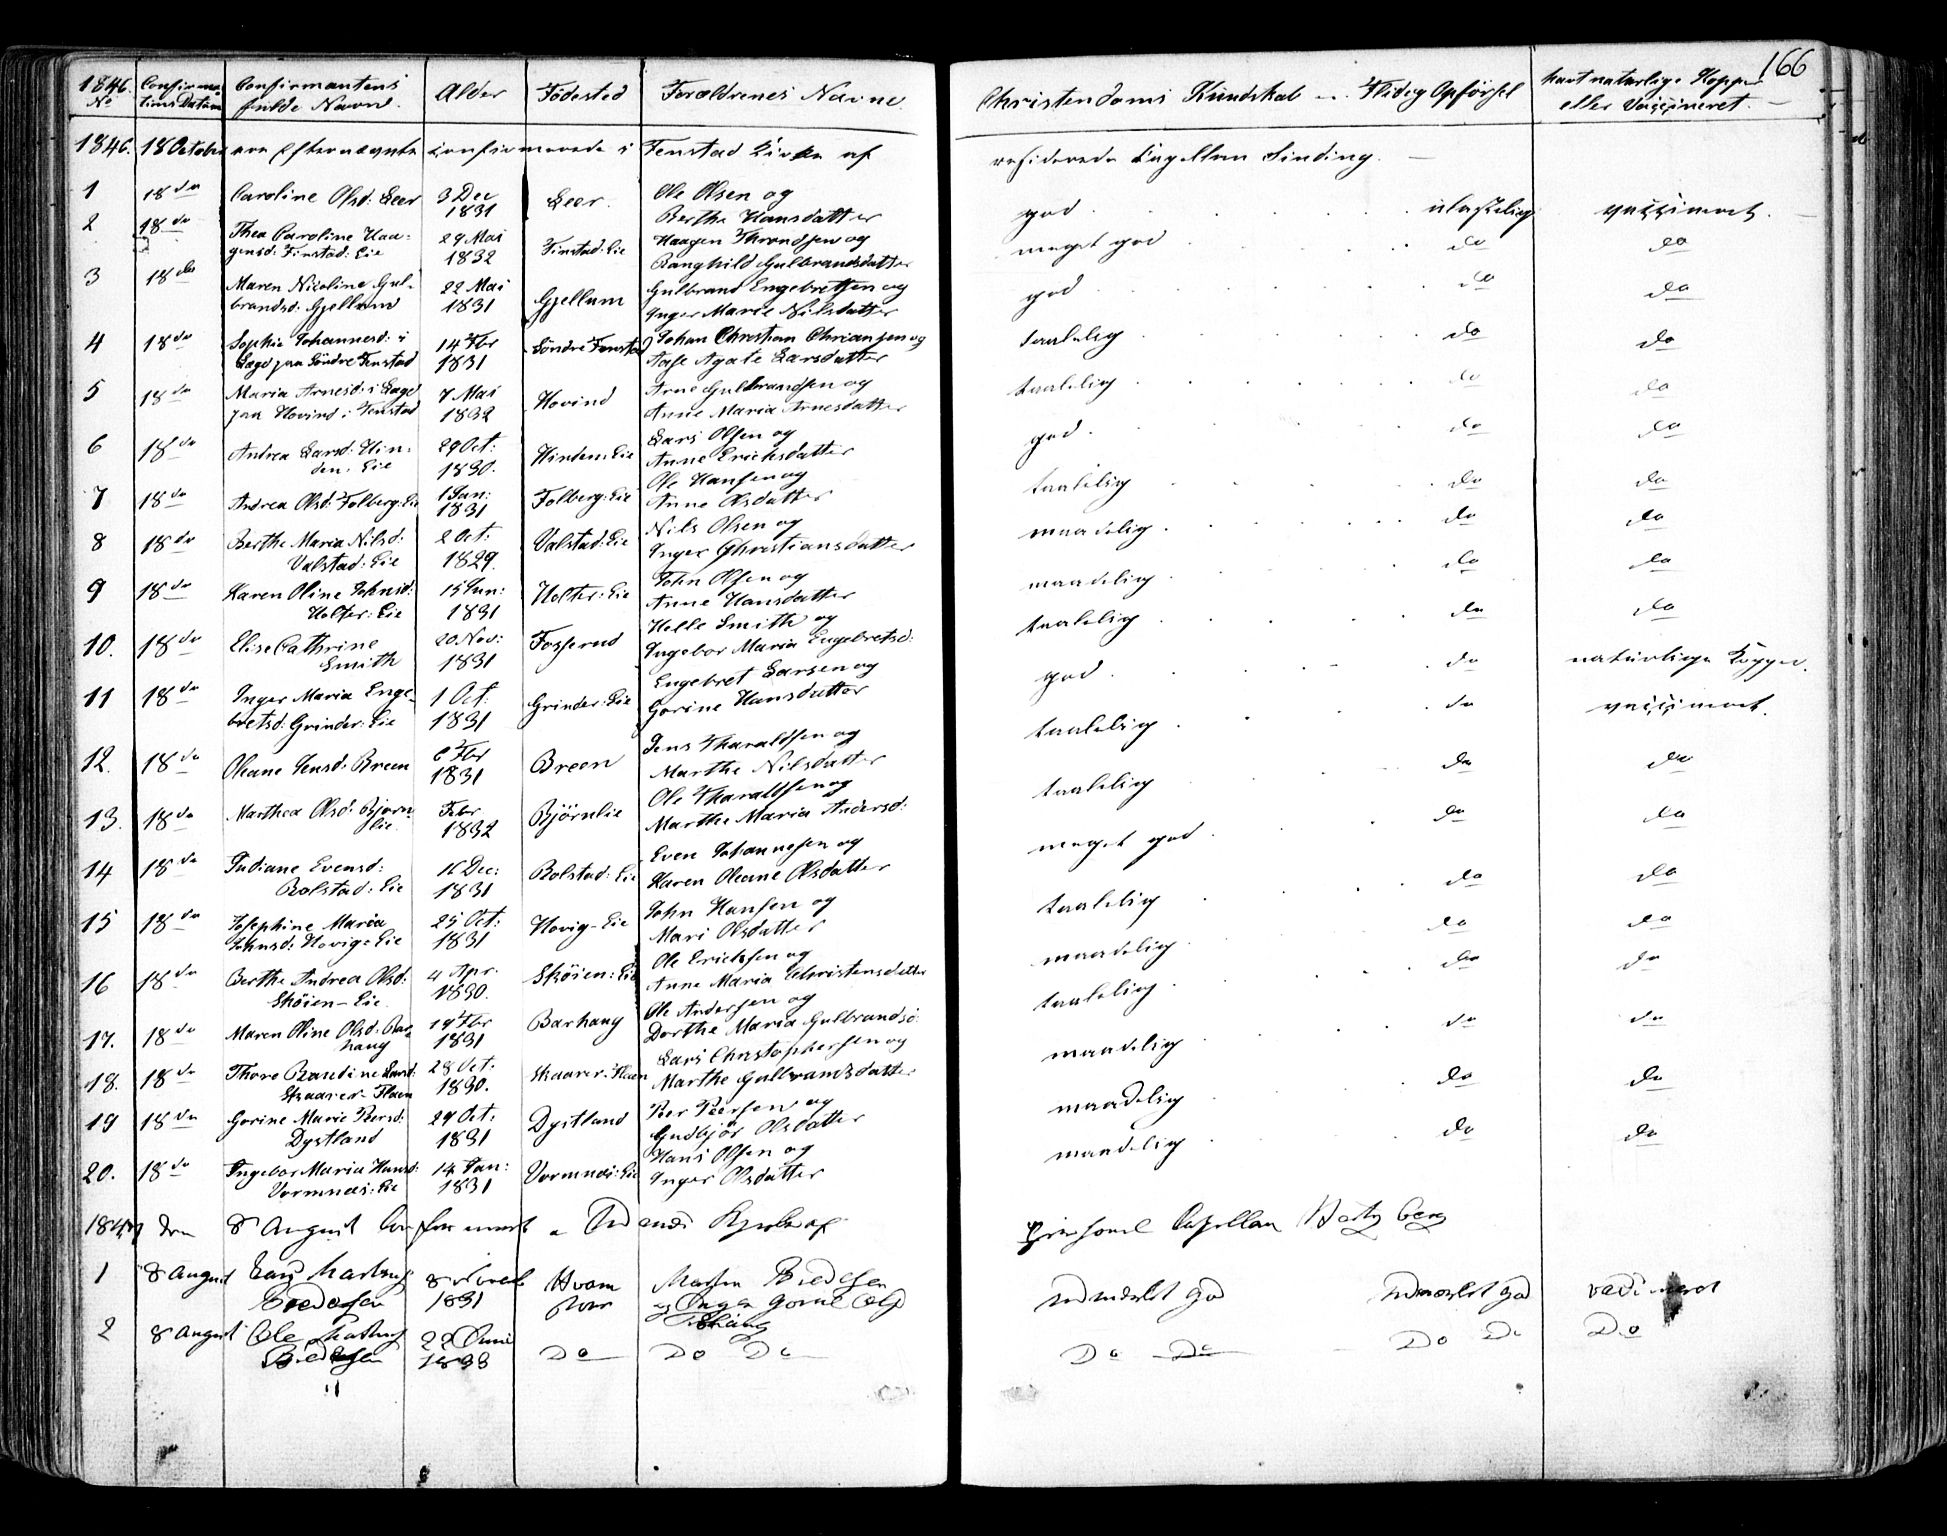 166
1846. No Confirmations Datum Confirmantens fulde Navn. Alder Födested Forældrenes Navne. Christendoms Kundskab Flid og Opförsel havt naturlige Kopper eller vaccineret.
1846. 18 October ere efternævnte confirmerede i Fenstad Kirke af residerende Capellan Sinding.
1 18 do Caroline Olsd: Leer 3 Dec 1831 Leer. Ole Olsen og Berthe Hansdatter god ulastelig vaccineret.
2 18 do Thea Caroline Haagensd: Finstad: Eie 29 Mai 1832 Finstad: Eie Haagen Throndsen og Ranghild Gulbrandsdatter meget god do do
3 18 do Maren Nicoline Gulbrandsd: Gjellum 22 Mai 1831 Gjellum Gulbrand Engebretsen og Inger Marie Nilsdatter god do do
4 18 do Sophie Johannesd: i Lage paa Söndre Fenstad 14 Fbr 1831 Söndre Fenstad Johan Christian Chriansen og Aase Agate Larsdatter taalelig do do
5 18 do Maria Arnesd: i Lage paa Hovind i Fenstad 7 Mai 1832 Hovind Arne Gulbrandsen og Anne Maria Arnesdatter taalelig do do
6 18 do Andrea Larsd: Hinden: Eie 29 Oct: 1830. Hinden: Eie Lars Olsen og Anne Erichsdatter god do do
7 18 do Andrea Olsd: Folberg: Eie 1 Jan: 1831 Folberg: Eie Ole Hansen og Anne Olsdatter taalelig do do
8 18 do Berthe Maria Nilsd: Valstad: Eie 2 Oct: 1829. Valstad: Eie Nils Olsen og Inger Christiansdatter maadelig do do
9 18 do Karen Oline Johnsd: Holter: Eie 15 Jun: 1831 Holter: Eie John Olsen og Anne Hansdatter maadelig do do
10. 18 do Elise Cathrine Smith 20 Nov: 1831 Fosserud Helle Smith og Ingebor Maria Engebretsd: taalelig do do
11 18 do Inger Maria Engebretsd: Grinder: Eie 1 Oct: 1831 Grinder: Eie Engebret Larsen og Gorine Hansdatter god do naturlige Kopper.
12. 18 do Oleane Jensd: Breen 6 Fbr 1831 Breen Jens Tharaldsen og Marthe Nilsdatter taalelig do vaccineret.
13. 18 do Marthea Olsd: Bjørnlie Febr 1832 Björnlie Ole Tharaldsen og Marthe Maria Andersd: taalelig do do
14 18 do Indiane Evensd: Rolstad: Eie 16 Dec: 1831 Rolstad: Eie Even Johannesen og Karen Oleane Olsdatter meget god do do
15 18 do Josephine Maria Johnsd: Hovig: Eie 25 Oct: 1831 Hovig-Eie John Hansen og Mari Olsdatter taalelig do do
16 18 do Berthe Andrea Olsd: Sköien-Eie 4 Apr. 1830. Sköien: Eie Ole Ericksen og Anne Maria Christensdatter maadelig do do
17. 18 do Maren Oline Olsd: Barhaug 19 Fbr 1831 Barhaug Ole Andersen og Dorthe Maria Gulbrandsd: taalelig do do
18. 18 do Thore Randine Larsd: Skaarer-Flaen 28 Oct: 1830. Skaarer-Flaen Lars Christophersen og Marthe Gulbrandsdatter maadelig do do
19 18 do Gorine Marie Peersd: Dystland 29 Oct: 1831 Dystland Peer Peersen og Gudbjör Olsdatter maadelig do do
20. 18 do Ingebor Maria Hansd: Vormnæs: Eie 14 Jan: 1831 Vormnæs: Eie Hans Olsen og Inger Olsdatter maadelig do do
1847 den 8 August Confirmert Kirke af Capellan Hartzberg
1 8 August Lars 8 1831 Hvam og udmærket god udmærket god vaccineret
2 8 August Ole 22 Juni Do Do Do Do Do Do Do Do